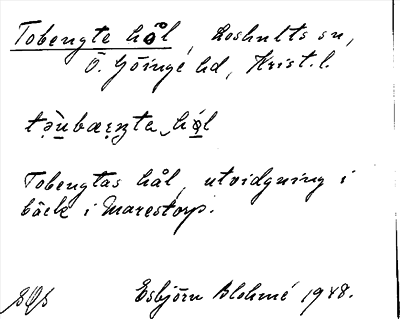 Tobengte hål, Loshults sn,
Ö. Göinge hd, Krist. l.
tə̀ùbæŋ̣ta hǫ́l
Tobengtas hål, utvidgning i
bäck i Marestorp.
Esbjörn Blohmé 1948.